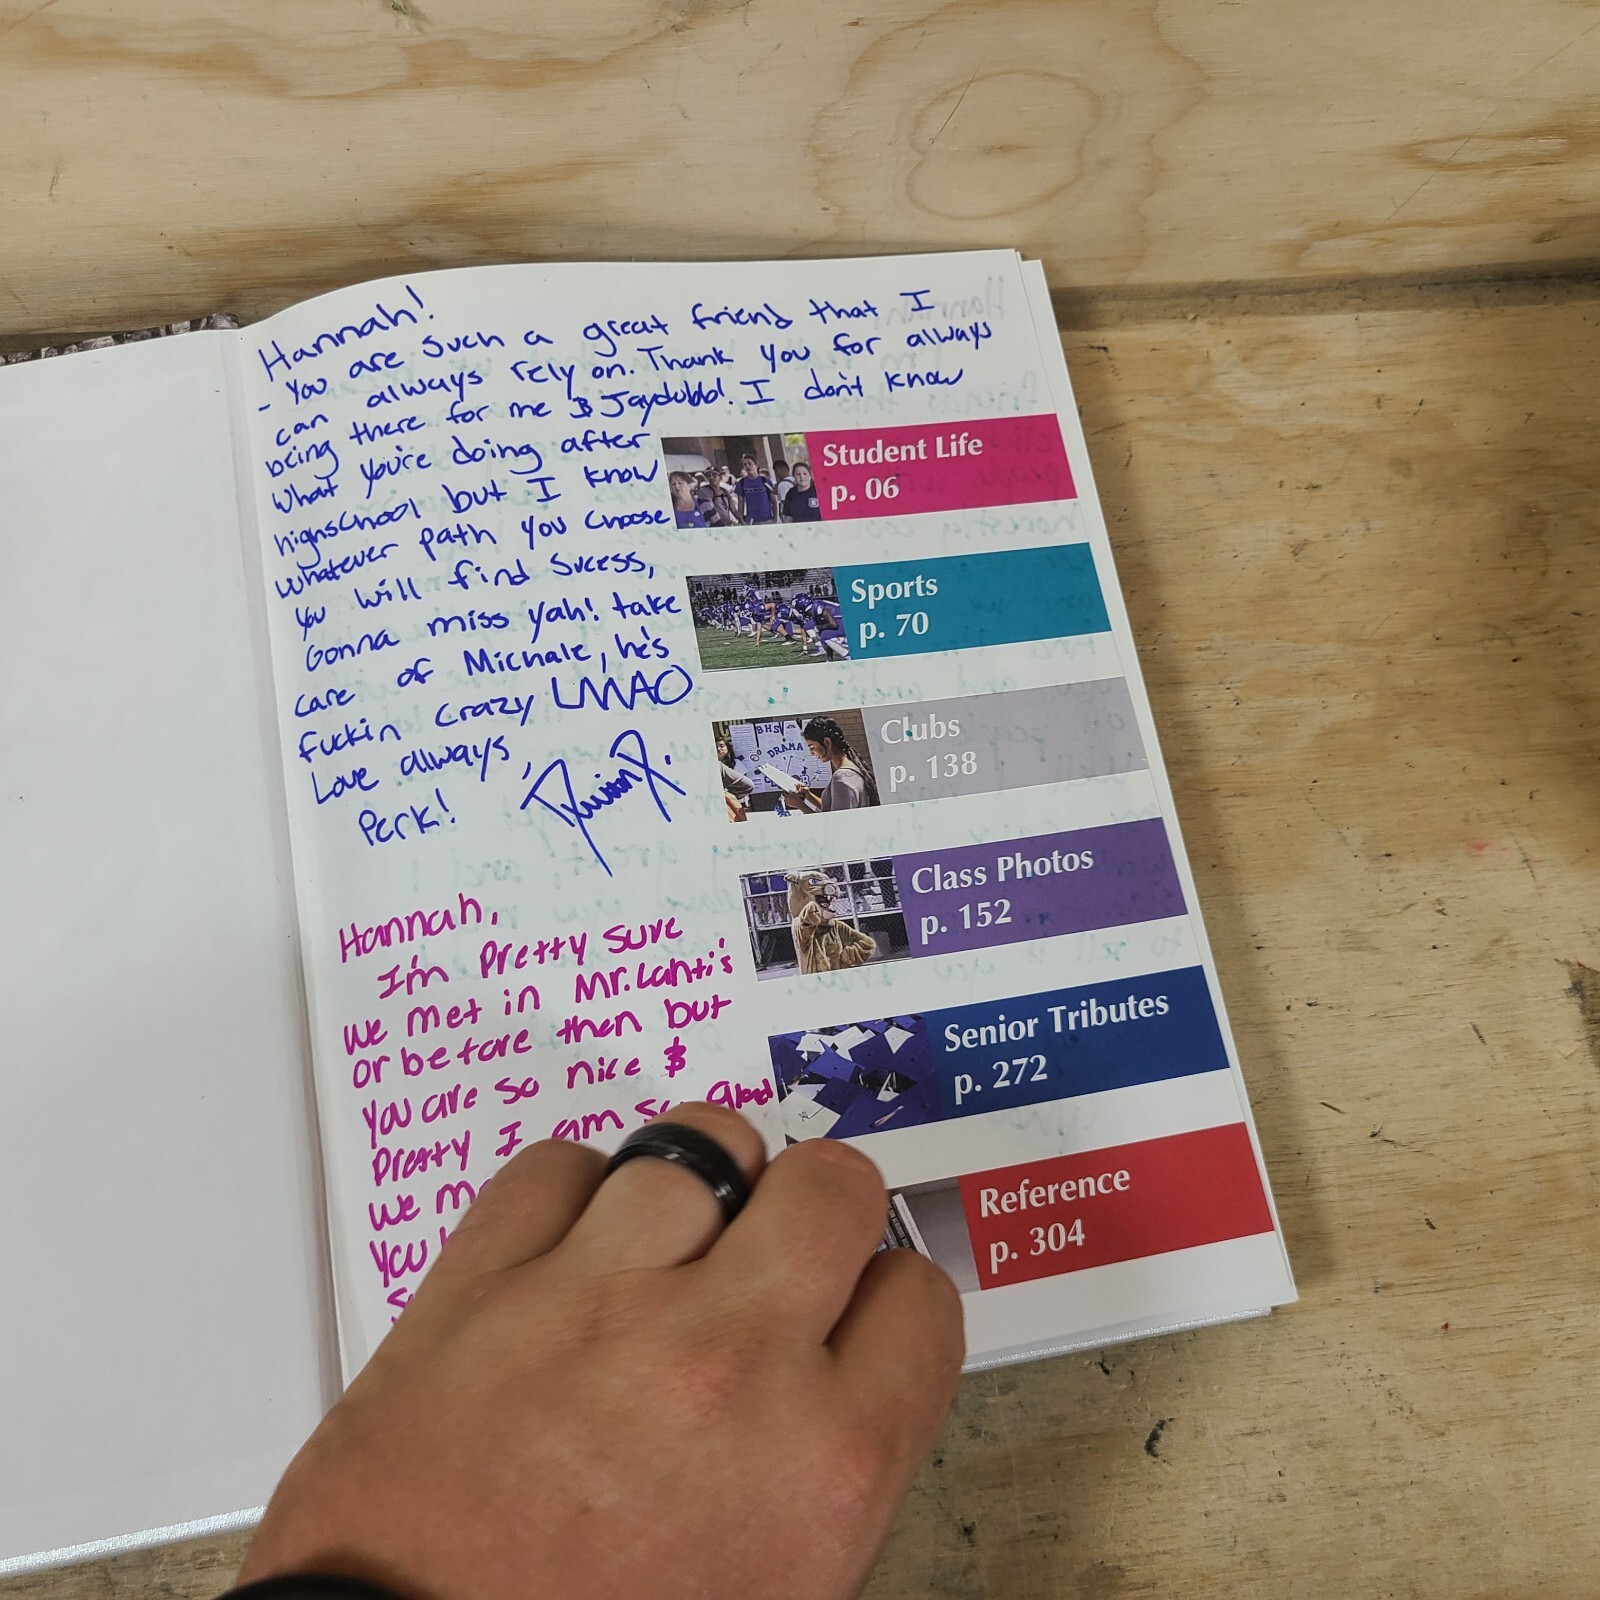 Hannah!
- You are such a great friend that I
can always rely on. Thank you for always
being there for me & Jaydubbl. I don't know
what you're doing after
highschool but I know
whatever path you choose
you will find sucess,
Gonna miss yah! take
care of Michale, he's
fuckin crazy LMAO
Love always,
Perk!
Hannah,
I'm Pretty sure
we met in Mr. Lanti's
or before then but
you are so nice &
pretty I am so glad
we
you
Student Life
p. 06
Sports
p. 70
BHS
DRAMA
Clubs
p. 138
Class Photos
p. 152
Senior Tributes
p. 272
Reference
p. 304